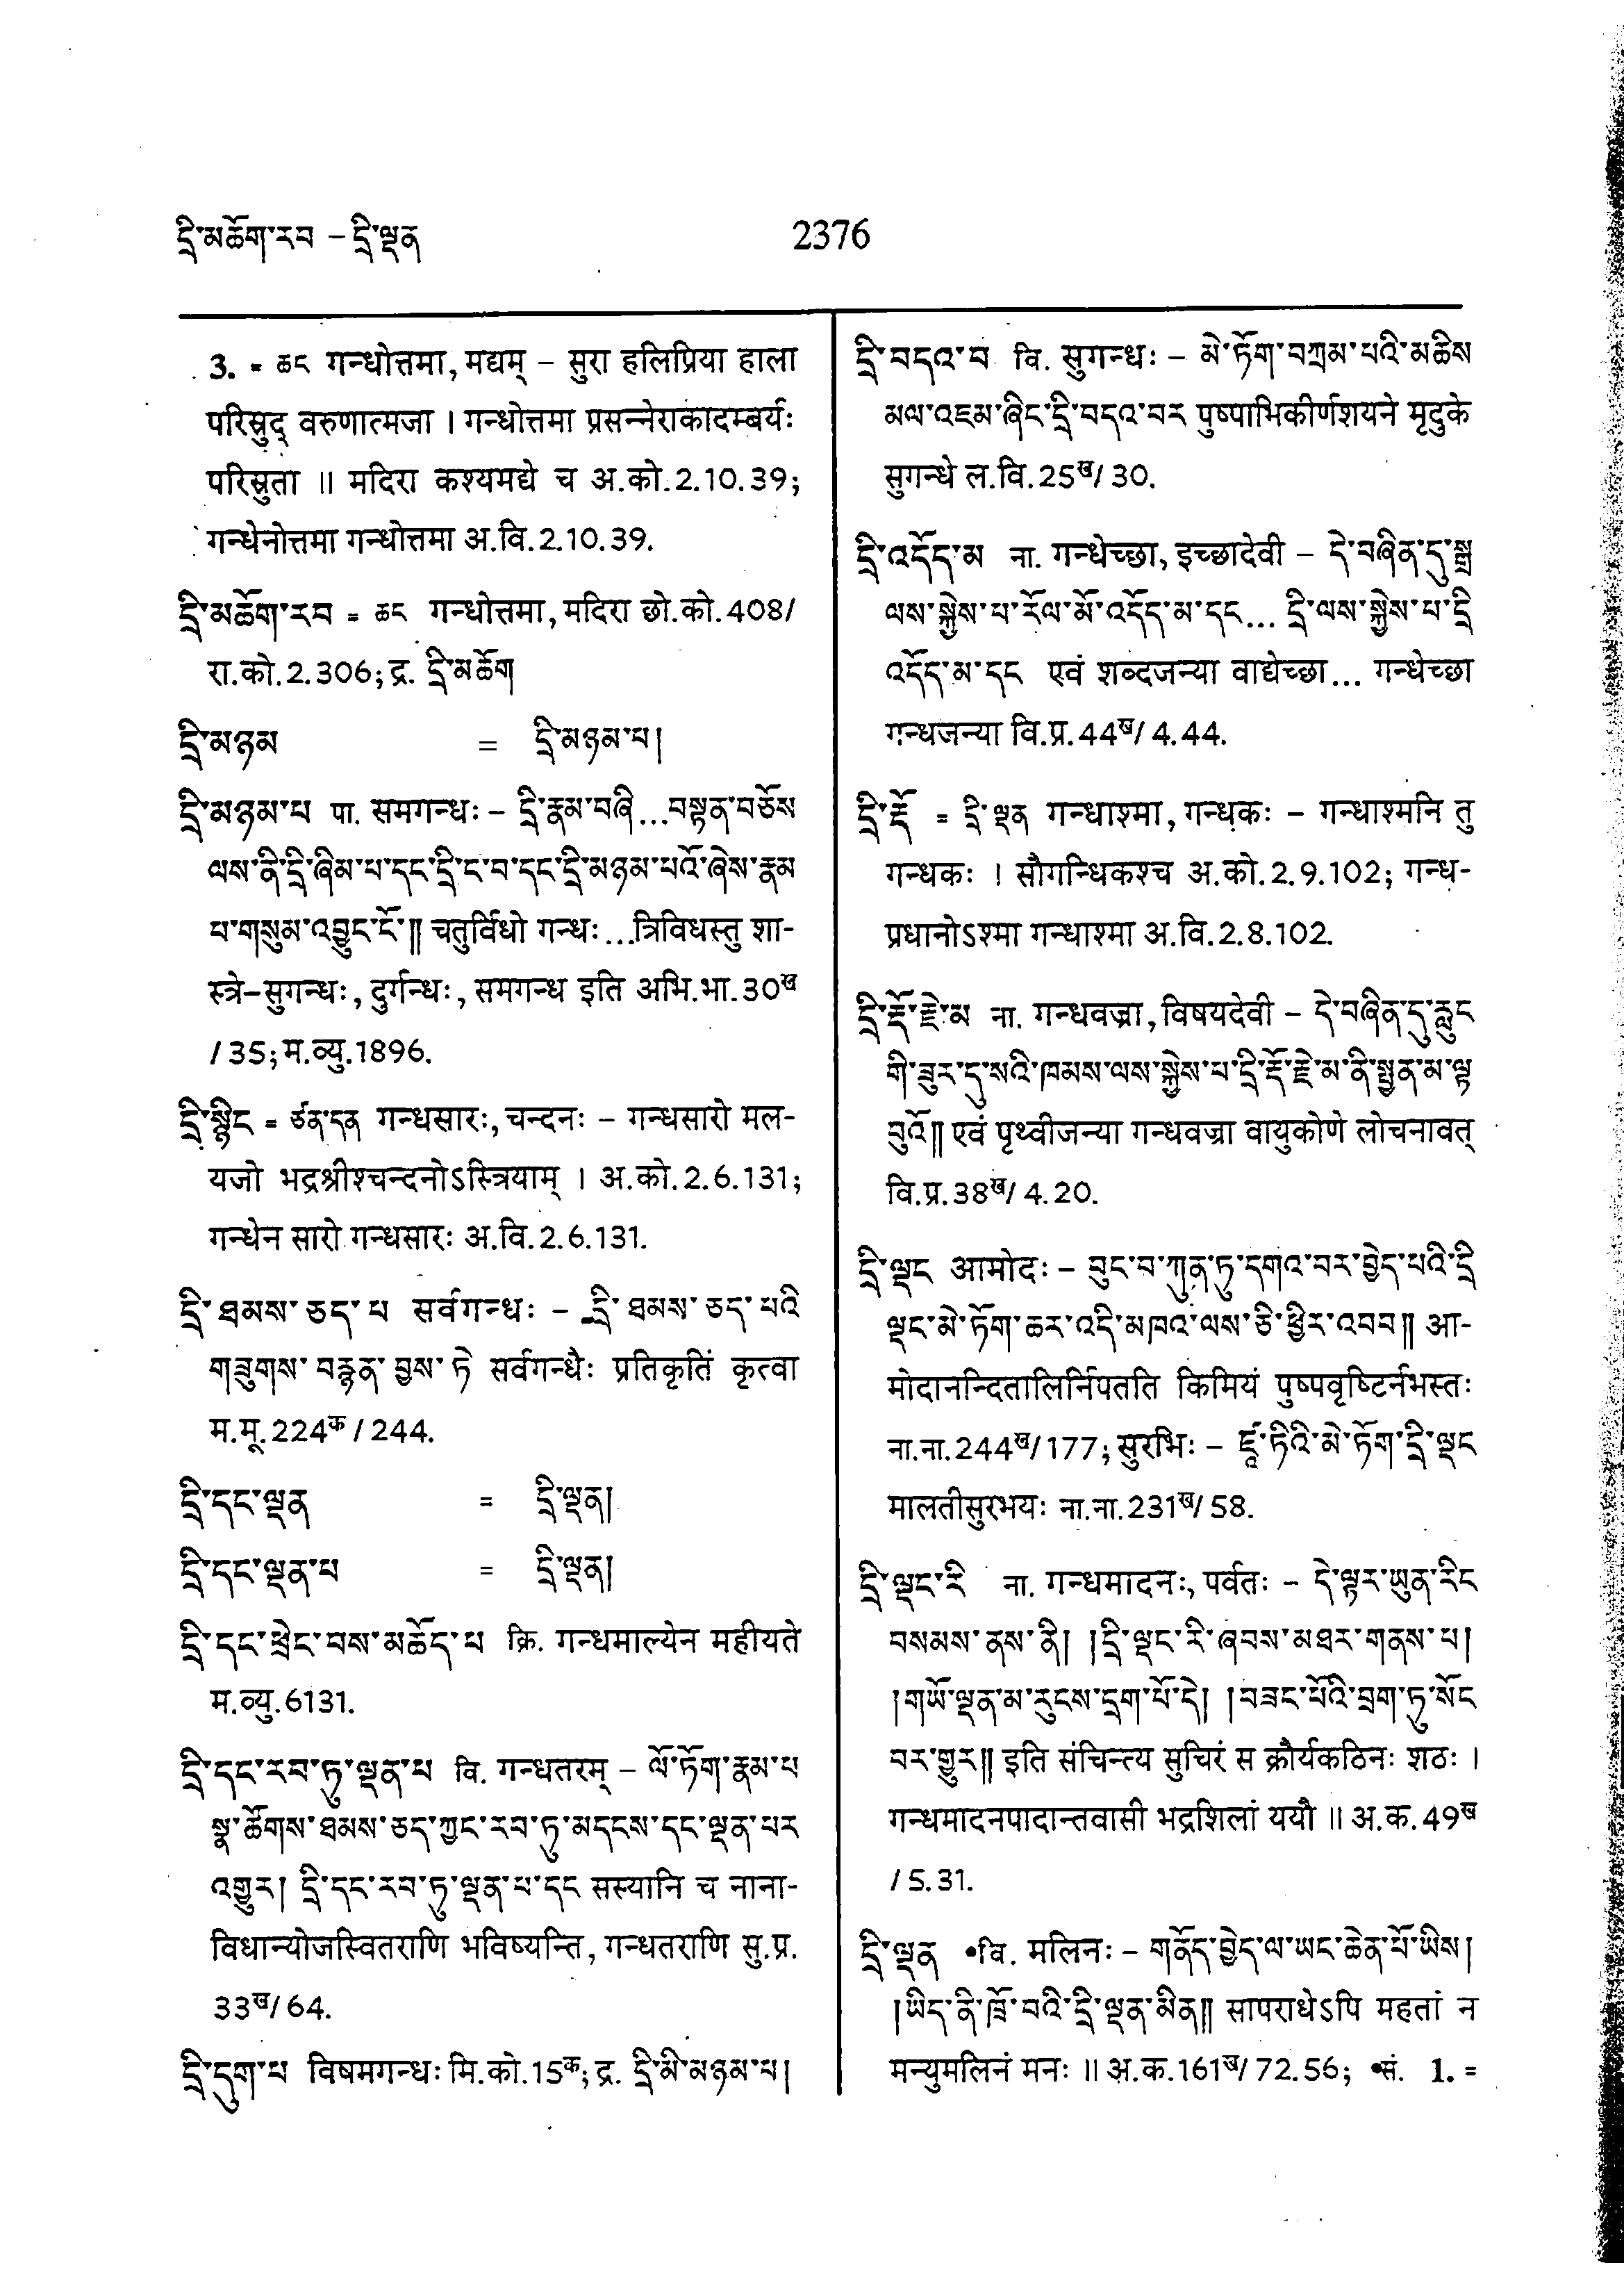 དྲི་མཆོག་རབ – དྲི་ལྡན
2376
3. = ཆང गन्धोत्तमा, मद्यम् – सुरा हलिप्रिया हाला
परिस्रुद् वरुणात्मजा । गन्धोत्तमा प्रसन्नेराकादम्बर्यः
परिस्रुता ॥ मदिरा कश्यमद्ये च अ.को.2.10.39;
गन्धेनोत्तमा गन्धोत्तमा अ.वि.2.10.39.
དྲི་མཆོག་རབ = ཆང गन्धोत्तमा, मदिरा छो.को.408/
रा.को.2.306; द्र. དྲི་མཆོག
དྲི་མཉམ = དྲི་མཉམ་པ།
དྲི་མཉམ་པ पा. समगन्धः – དྲི་རྣམ་བཞི...བསྟན་བཅོས
ལས་ནི་དྲི་ཞིམ་པ་དང་དྲི་ང་བ་དང་དྲི་མཉམ་པའོ་ཞེས་རྣམ
པ་གསུམ་འབྱུང་ངོ་༎ चतुर्विधो गन्धः...त्रिविधस्तु शा-
स्त्रे–सुगन्धः, दुर्गन्धः, समगन्ध इति अभि.भा.30ख
/ 35; म.व्यु.1896.
དྲི་སྙིང = ཙན་དན गन्धसारः, चन्दनः – गन्धसारो मल-
यजो भद्रश्रीश्चन्दनोऽस्त्रियाम् । अ.को.2.6.131;
गन्धेन सारो गन्धसारः अ.वि.2.6.131.
དྲི་ཐམས་ཅད་པ सर्वगन्धः – དྲི་ཐམས་ཅད་པའི
གཟུགས་བརྙན་བྱས་ཏེ सर्वगन्धैः प्रतिकृतिं कृत्वा
म.मू.224क / 244.
དྲི་དང་ལྡན = དྲི་ལྡན།
དྲི་དང་ལྡན་པ = དྲི་ལྡན།
དྲི་དང་ཕྲེང་བས་མཆོད་པ क्रि. गन्धमाल्येन महीयते
म.व्यु.6131.
དྲི་དང་རབ་ཏུ་ལྡན་པ वि. गन्धतरम् – ལོ་ཏོག་རྣམ་པ
སྣ་ཚོགས་ཐམས་ཅད་ཀྱང་རབ་ཏུ་མདངས་དང་ལྡན་པར
འགྱུར། དྲི་དང་རབ་ཏུ་ལྡན་པ་དང सस्यानि च नाना-
विधान्योजस्वितराणि भविष्यन्ति, गन्धतराणि सु.प्र.
33ख/ 64.
དྲི་དུག་པ विषमगन्धः मि.को.15क; द्र. དྲི་མི་མཉམ་པ།
དྲི་བདའ་བ वि. सुगन्धः – མེ་ཏོག་བཀྲམ་པའི་མཆིས
མལ་འཇམ་ཞིང་དྲི་བདའ་བར पुष्पाभिकीर्णशयने मृदुके
सुगन्धे ल.वि.25ख/ 30.
དྲི་འདོད་མ ना. गन्धेच्छा, इच्छादेवी – དེ་བཞིན་དུ་སྒྲ
ལས་སྐྱེས་པ་རོལ་མོ་འདོད་མ་དང... དྲི་ལས་སྐྱེས་པ་དྲི
འདོད་མ་དང एवं शब्दजन्या वाद्येच्छा... गन्धेच्छा
गन्धजन्या वि.प्र.44ख/ 4.44.
དྲི་རྡོ = དྲི་ལྡན गन्धाश्मा, गन्धकः – गन्धाश्मनि तु
गन्धकः । सौगन्धिकश्च अ.को.2.9.102; गन्ध-
प्रधानोऽश्मा गन्धाश्मा अ.वि.2.8.102.
དྲི་རྡོ་རྗེ་མ ना. गन्धवज्रा, विषयदेवी – དེ་བཞིན་དུ་རླུང
གི་ཟུར་དུ་སའི་ཁམས་ལས་སྐྱེས་པ་དྲི་རྡོ་རྗེ་མ་ནི་སྤྱན་མ་ལྟ
བུའོ༎ एवं पृथ्वीजन्या गन्धवज्रा वायुकोणे लोचनावत्
वि.प्र.38ख/ 4.20.
དྲི་ལྡང आमोदः – བུང་བ་ཀུན་ཏུ་དགའ་བར་བྱེད་པའི་དྲི
ལྡང་མེ་ཏོག་ཆར་འདི་མཁའ་ལས་ཅི་ཕྱིར་འབབ༎ आ-
मोदानन्दितालिर्निपतति किमियं पुष्पवृष्टिर्नभस्तः
ना.ना.244ख/ 177; सुरभिः – ཛཱ་ཏིའི་མེ་ཏོག་དྲི་ལྡང
मालतीसुरभयः ना.ना.231ख/ 58.
དྲི་ལྡང་རི ना. गन्धमादनः, पर्वतः – དེ་ལྟར་ཡུན་རིང
བསམས་ནས་ནི། །དྲི་ལྡང་རི་ཞབས་མཐར་གནས་པ།
།གཡོ་ལྡན་མ་རུངས་དྲག་པོ་དེ། །བཟང་པོའི་བྲག་ཏུ་སོང
བར་གྱུར༎ इति संचिन्त्य सुचिरं स क्रौर्यकठिनः शठः ।
गन्धमादनपादान्तवासी भद्रशिलां ययौ ॥ अ.क.49ख
/ 5.31.
དྲི་ལྡན •वि. मलिनः – གནོད་བྱེད་ལ་ཡང་ཆེན་པོ་ཡིས།
།ཡིད་ནི་ཁྲོ་བའི་དྲི་ལྡན་མིན༎ सापराधेऽपि महतां न
मन्युमलिनं मनः ॥ अ.क.161ख/ 72.56; •सं. 1. =